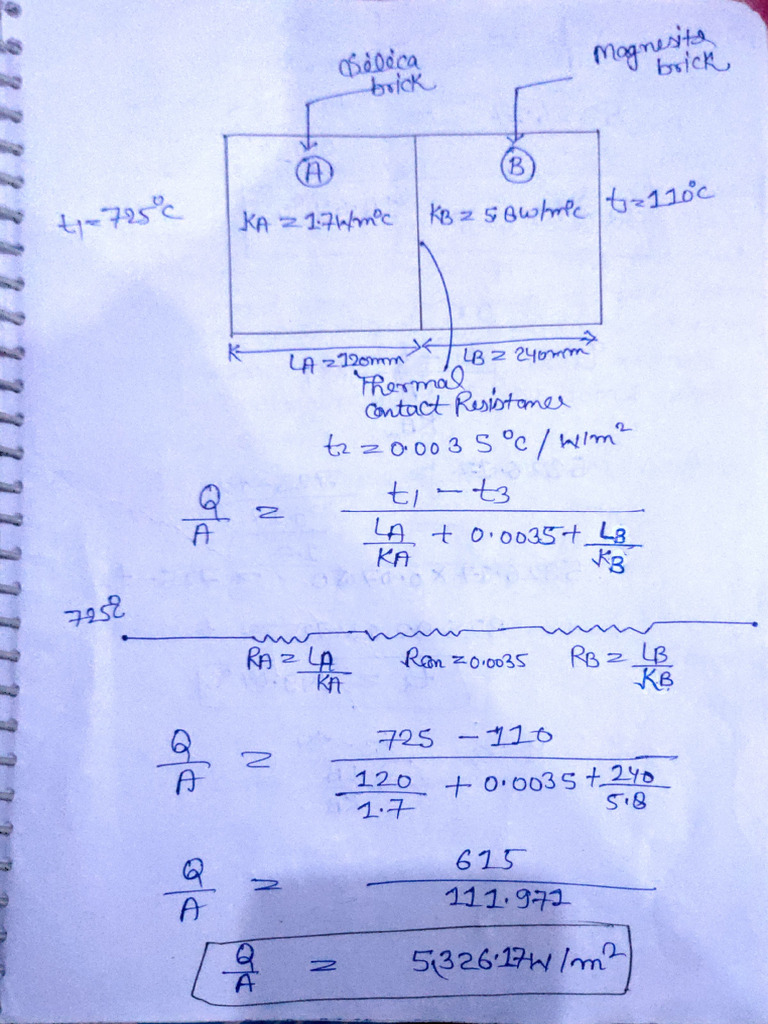 Silica brick
Magnesite brick
A
B
t1 = 725°C
KA = 1.7W/m°C
KB = 5.8W/m°C
t3 = 110°C
LA = 120mm
LB = 240mm
Thermal
Contact Resistance
t2 = 0.0035 °C / W/m²
Q/A = (t1 - t3) / (LA/KA + 0.0035 + LB/KB)
725Ω
RA = LA/KA Rcon = 0.0035 RB = LB/KB
Q/A = (725 - 110) / (120/1.7 + 0.0035 + 240/5.8)
Q/A = 615 / 111.971
Q/A = 5,326.17W/m²